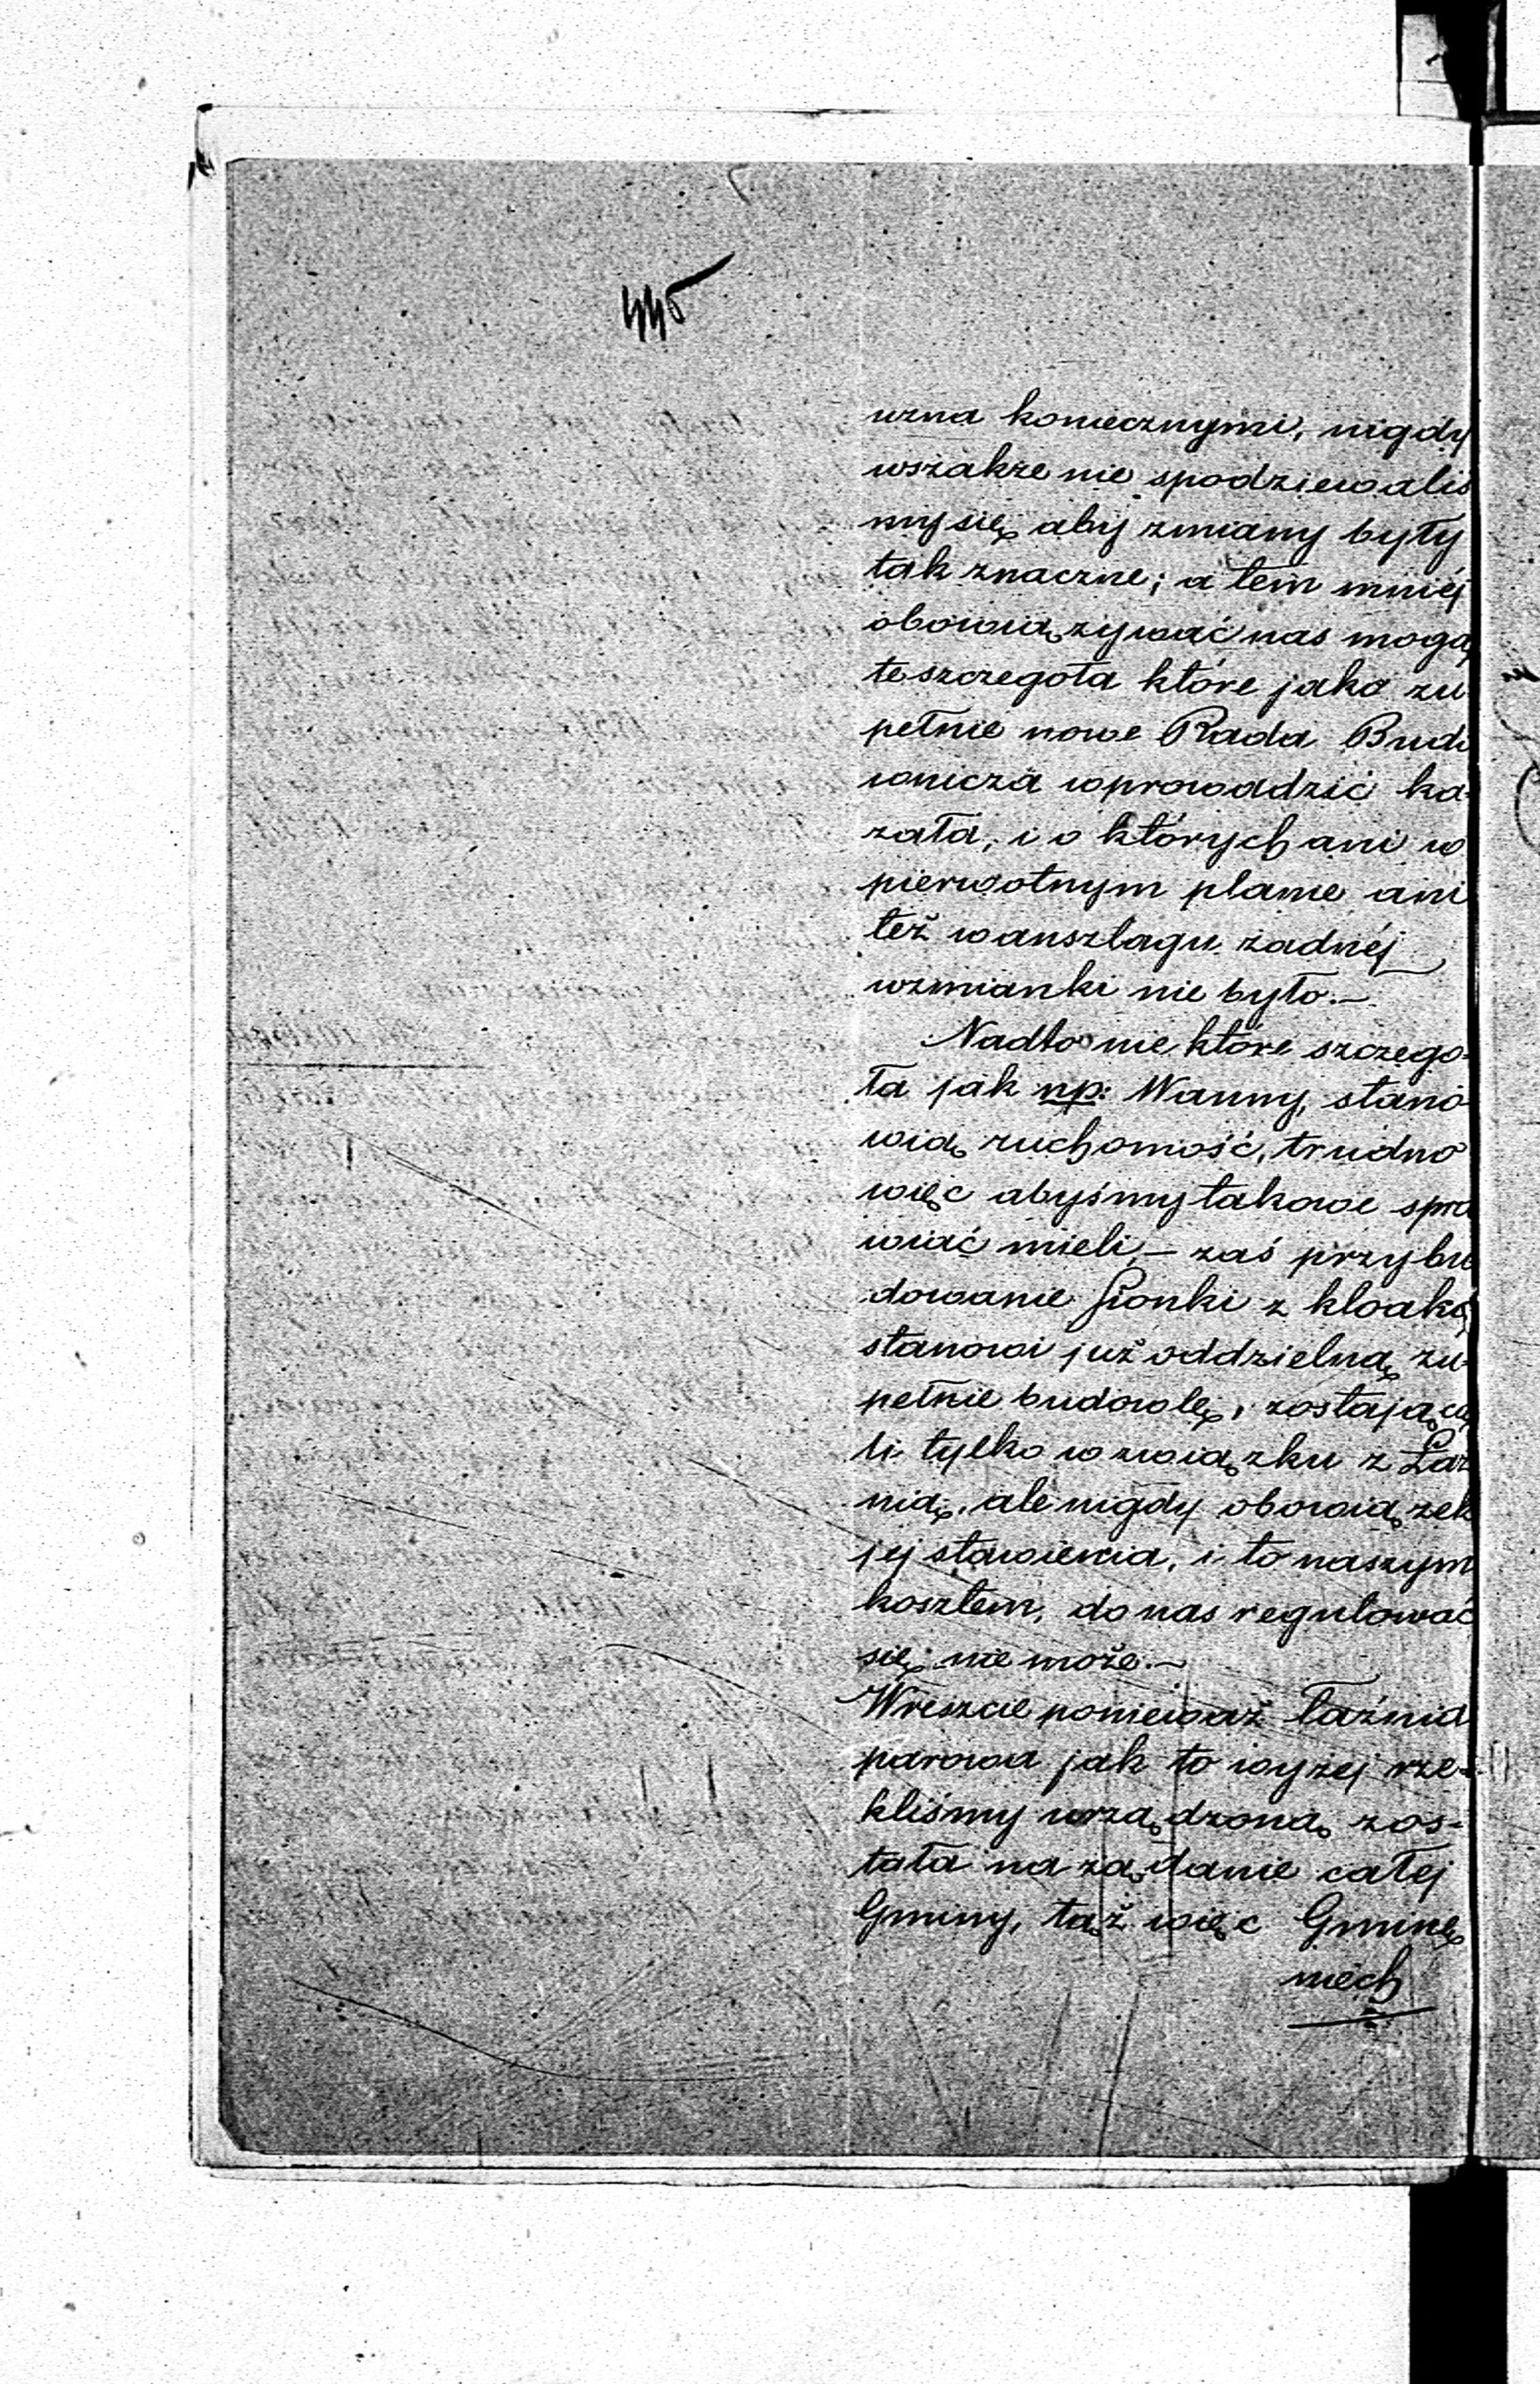 445
uzna koniecznymi, nigdy
wszakże nie spodziewaliś
my się, aby zmiany były
tak znaczne; a tem mniéj
obowiązywać nas mogą
te szczegoła które jako zu
pełnie nowe Rada Budo
wnicza wprowadzić ka-
zała, i o których ani w
pierwotnym planie ani
też w anszlagu żadnéj
wzmianki nie było.—
Nadto nie które szczego-
ła jak np: Wanny, stano
wią ruchomość, trudno
więc abyśmy takowe spra
wiać mieli,— zaś przybu
dowanie Sionki z kloaką
stanowi już oddzielną zu-
pełnie budowlę, zostającą
li tylko w związku z Łaź
nią, ale nigdy obowiązek
jej stawienia, i to naszym
kosztem, do nas regulować
się nie może.—
Wreszcie ponieważ łaźnia
parowa jak to wyżej rze-
kliśmy urządzoną zos-
tała na żądanie całej
Gminy, taż więc Gminę
niech